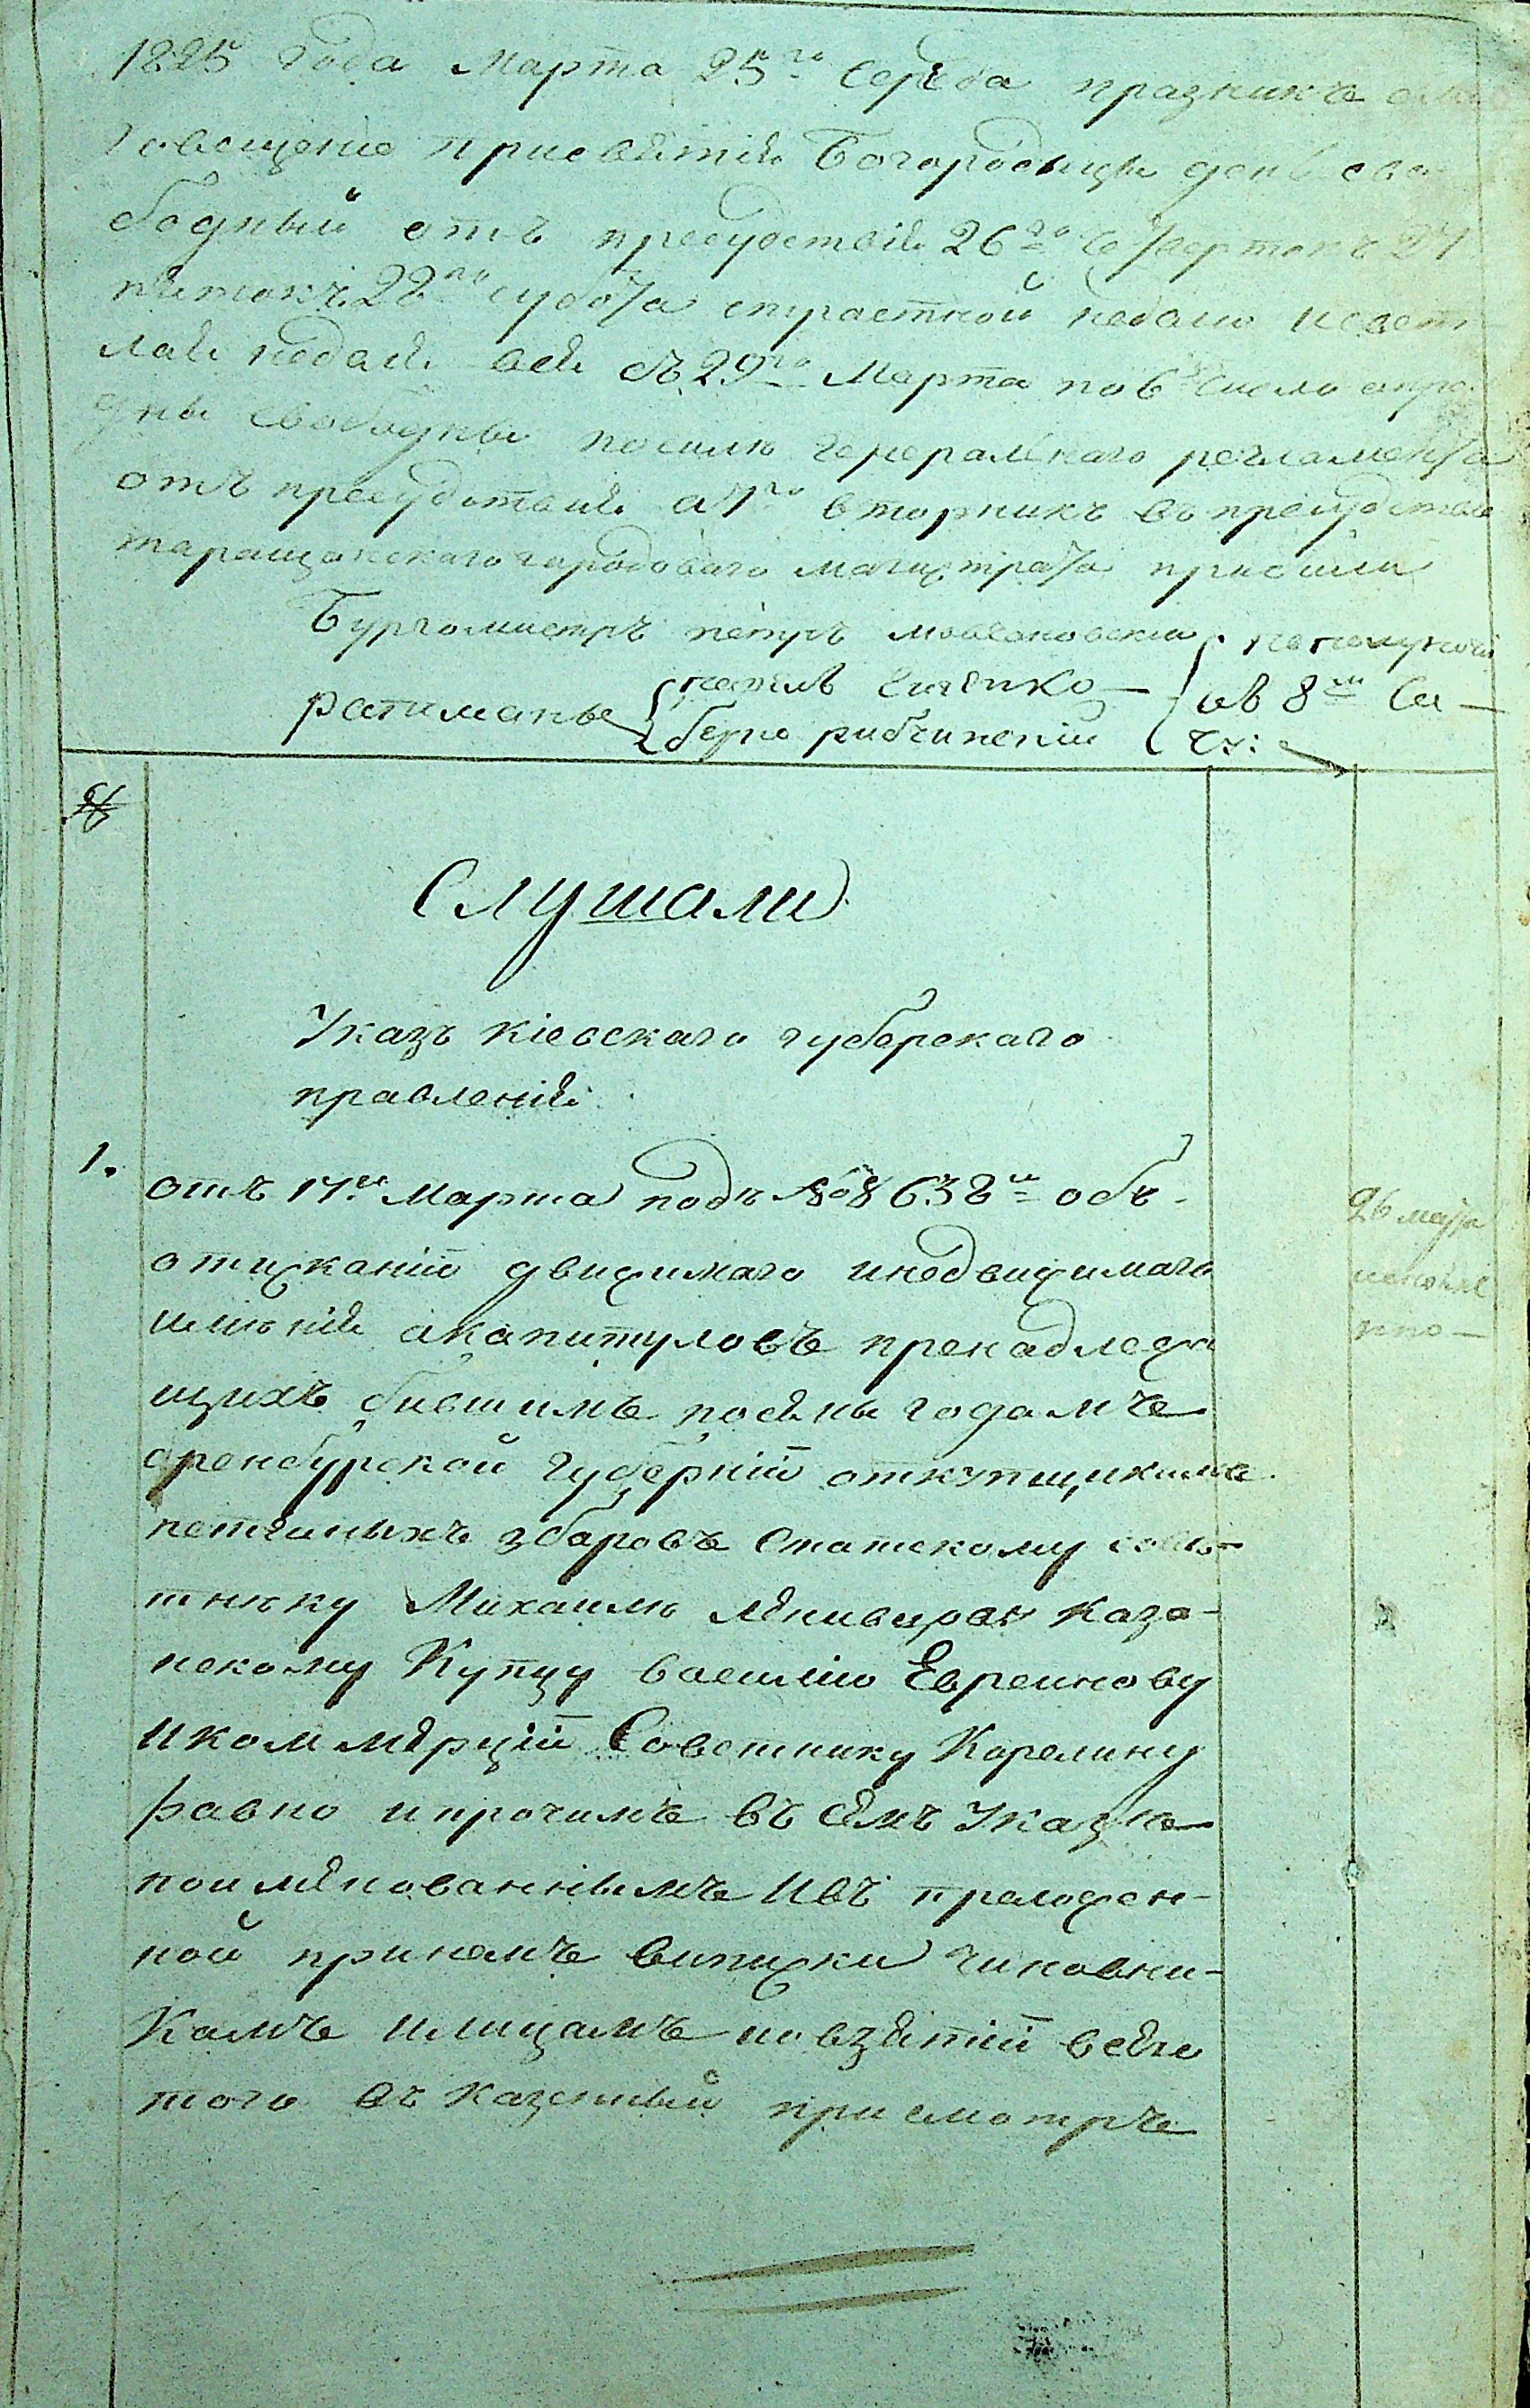 1825 года Марта 25го Середа празникъ
говещение Присвятія Богородыци день сво
бодный отъ пресудствія 26го Четвертокъ 27
пятокъ 28го субота страстной неделю исвет
лая неделя вся съ 29го Марта по 6 число апре
дны свободны посилю генералнаго регламента
отъ пресудствія а 7го вторникъ въ пресудствие
таращанскаго городоваго магистрата присили
Бургомистръ петръ пополуночи
ратманы { ив 8м ча
берко рибчинскій сꙋ:
№
Слушали
Указъ кіевскаго губерскаго
правленія
1.
отъ 17го Марта подъ № 8638м объ
отисканіи движимаго инедвижимаго
имѣнія акапитуловъ пренадлежа
щихъ бившимъ посямы годамъ
оренбурской губерніи откупщикамъ
петейныхъ зборовъ Статскому совѣ
тнику Михаилю казо-
нскому Купцу василію Евреинову
икоммярціи Советнику Корелину
равно ипрочимъ въ сямъ Указѣ
поимянованнымъ ивъ преложен-
ной принемъ виписки чиновни-
камъ илицамъ повзятіи всяго
того въ казенный присмотръ
26 марта
исполне
нно —